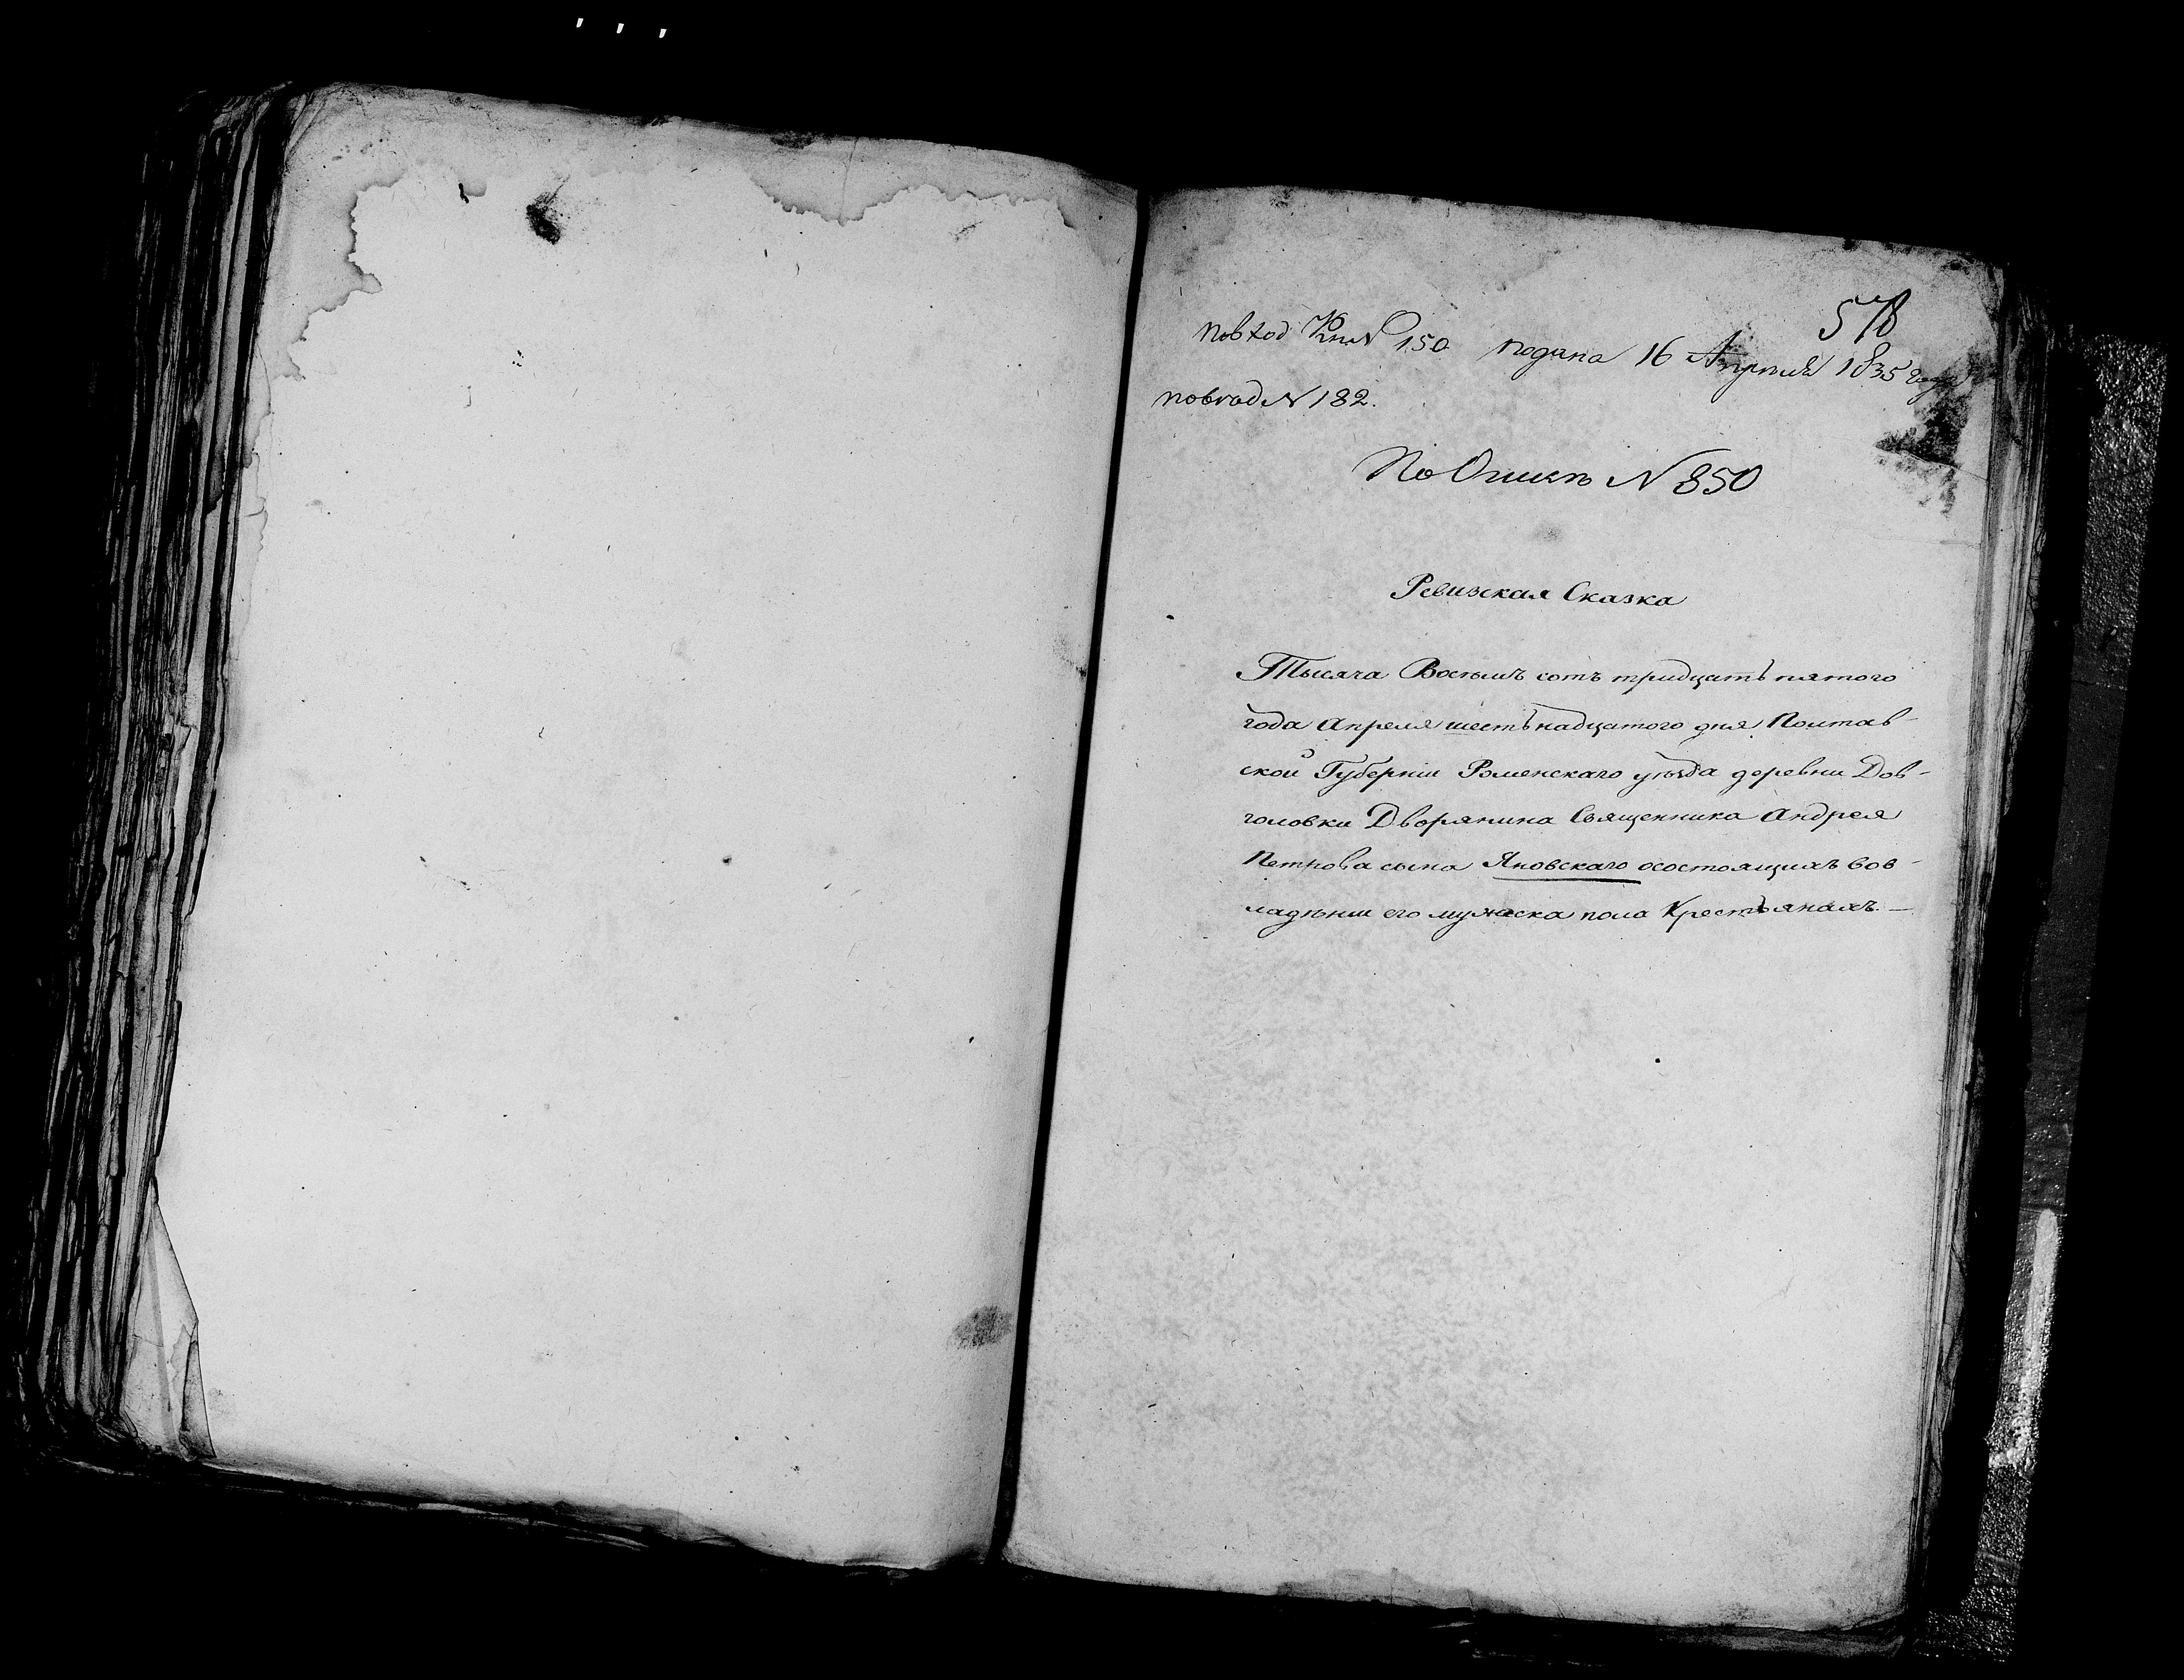 578
повход Кн№ 150 подана 16 Апреля 1835 году
повход № 182.
По Описи № 850
Ревизская Сказка
Тысяча Восемъ сотъ тридцать пятого
года Апреля шестьнадцатого дня Полтав-
ской Губерніи Роменскаго уѣзда деревни Дов-
головки Дворянина Священника Андрея
Петрова сына Яновскаго осостоящихъ вов-
ладѣніи его мужеска пола Крестьянахъ.—